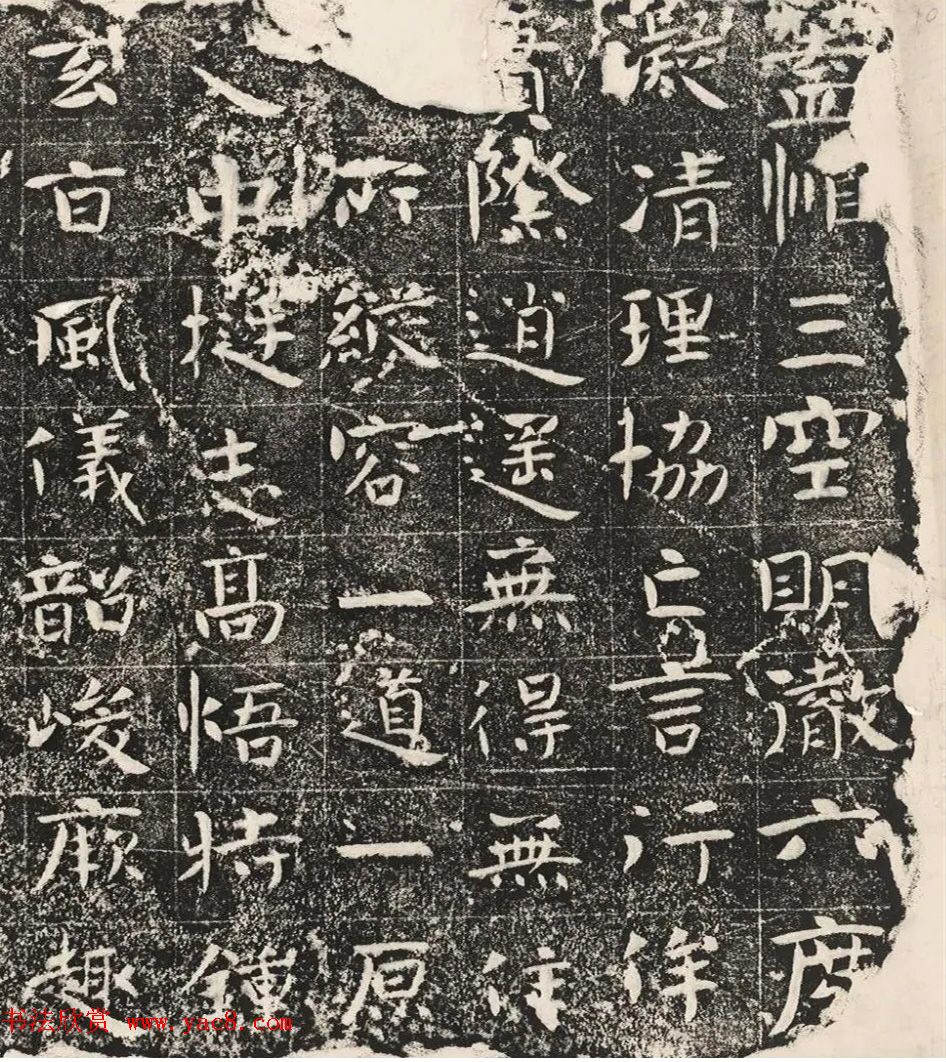 蓋惟三空眀澈六度
凝清理協亡言行侔
實際逍遥無得無住
所縱容一道一原
人中挺志高悟特鍾
玄旨風儀韶峻厥趣
书法欣赏 www.yac8.com